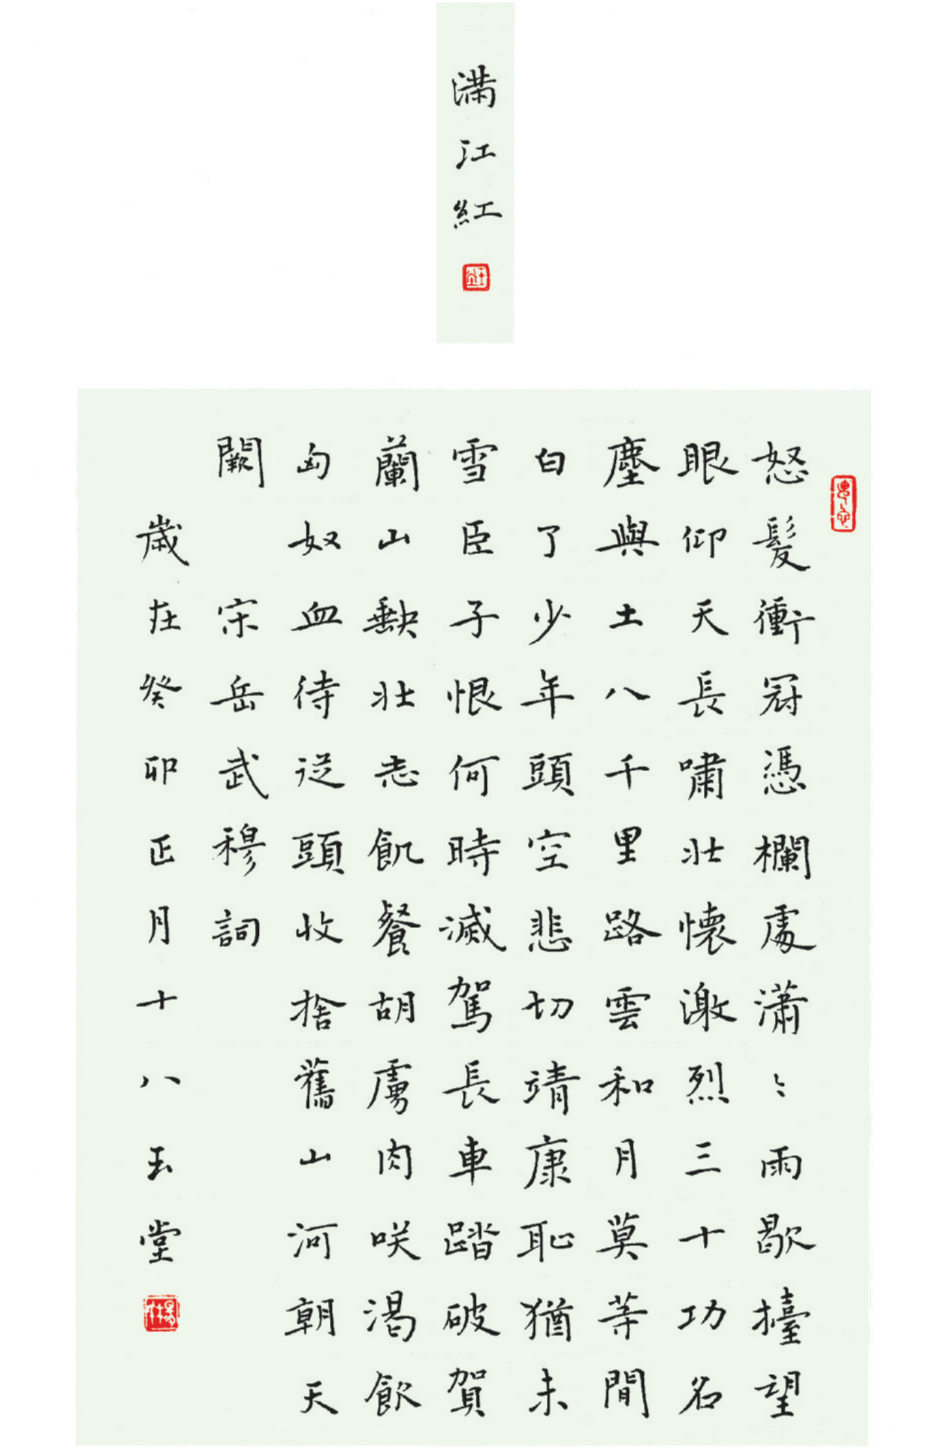 滿江紅
怒髮衝冠憑欄處瀟〻雨歇擡望
眼仰天長嘯壯懷激烈三十功名
塵與土八千里路雲和月莫等閒
白了少年頭空悲切靖康恥猶未
雪臣子恨何時滅駕長車踏破賀
蘭山缺壯志飢餐胡虜肉咲渴飲
匈奴血待從頭收捨舊山河朝天
闕 宋岳武穆詞
歲在癸卯正月十八玉堂